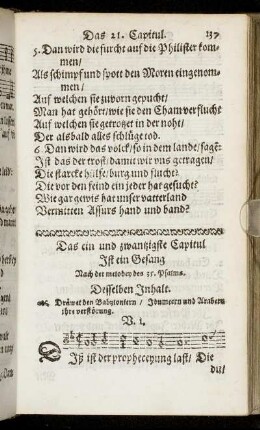 Das 21. Capitul. 137
5. Dan wird die furcht auf die Philister kom-
men/
Als schimpf und spott den Moren eingenom-
men/
Auf welchen sie zuvorn gepucht/
Man hat gehört/wie sie den Cham verflucht
Auf welchen sie getrotzet in der noht/
Der als bald alles schlüg tod.
6. Dan wird das volck/so in dem lande/sagē:
Ist das der trost/damit wir uns getragen/
Die starcke hülfe/burg und flucht?
Die vor den feind ein jeder hat gesucht?
Wie gar gewis hat unser vatterland
Vermitten Assurs hand und band?
Das ein und zwanzigste Capitul
Ist ein Gesang
Nach der melodey des 35. Psalms.
Desselben Inhalt.
Dräwet den Babyloniern / Idumeern und Arabern
ihre verstörung.
V. 1.
Jß ist der propheceyung last/ Die
du/